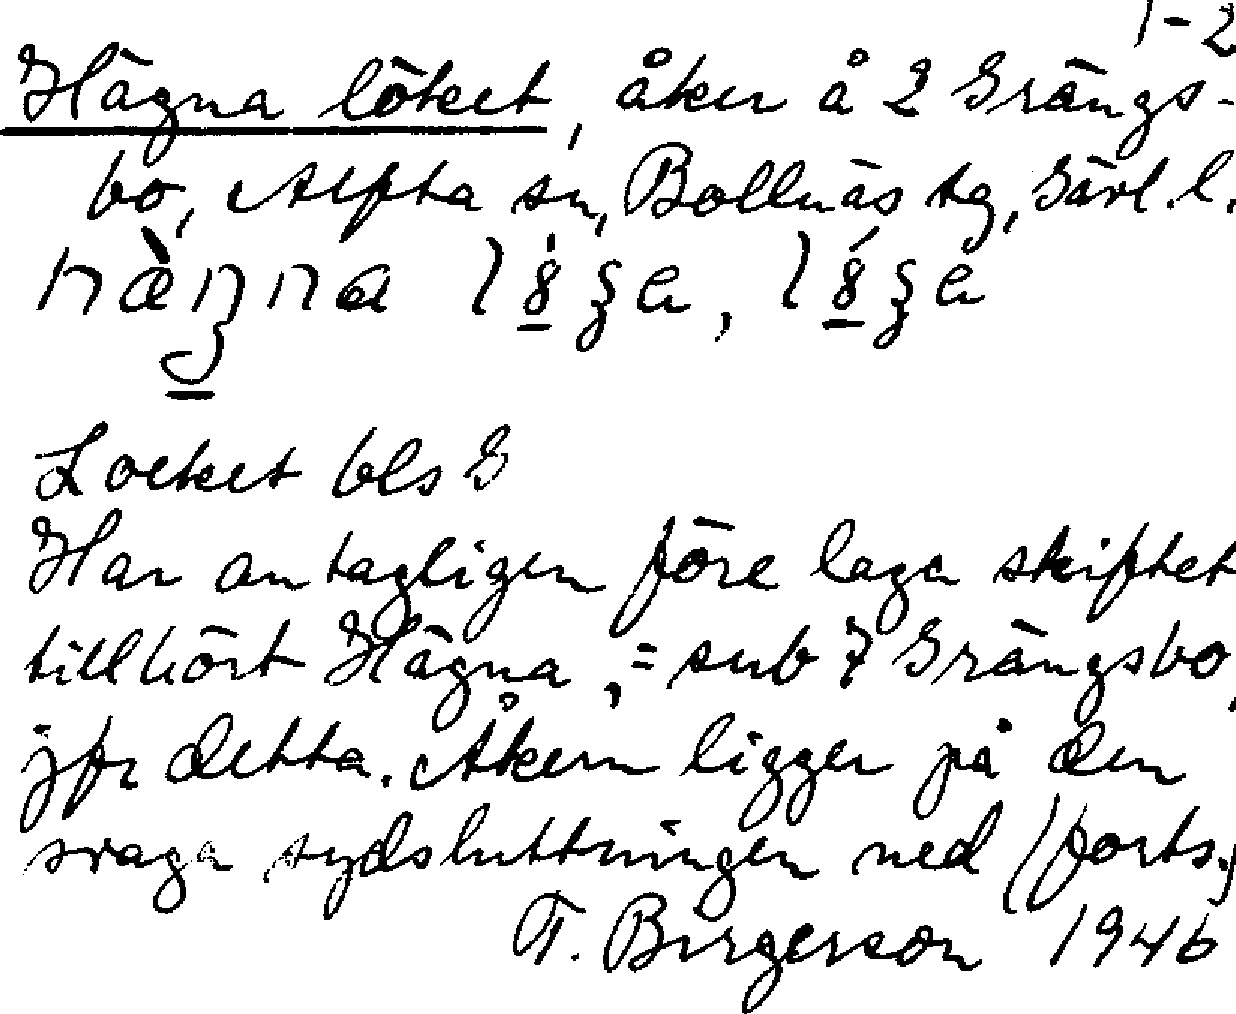 1-2
Hägna löket, åker å 2 Grängs-
bo, Alfta sn, Bollnäs tg, Gävl. l.
Locket bls G
Har antagligen före laga skiftet
tillhört Hägna, = sub 7 Grängsbo,
jfr detta. Åkern ligger på den
svaga sydsluttningen ned (forts.)
T. Birgerson 1946